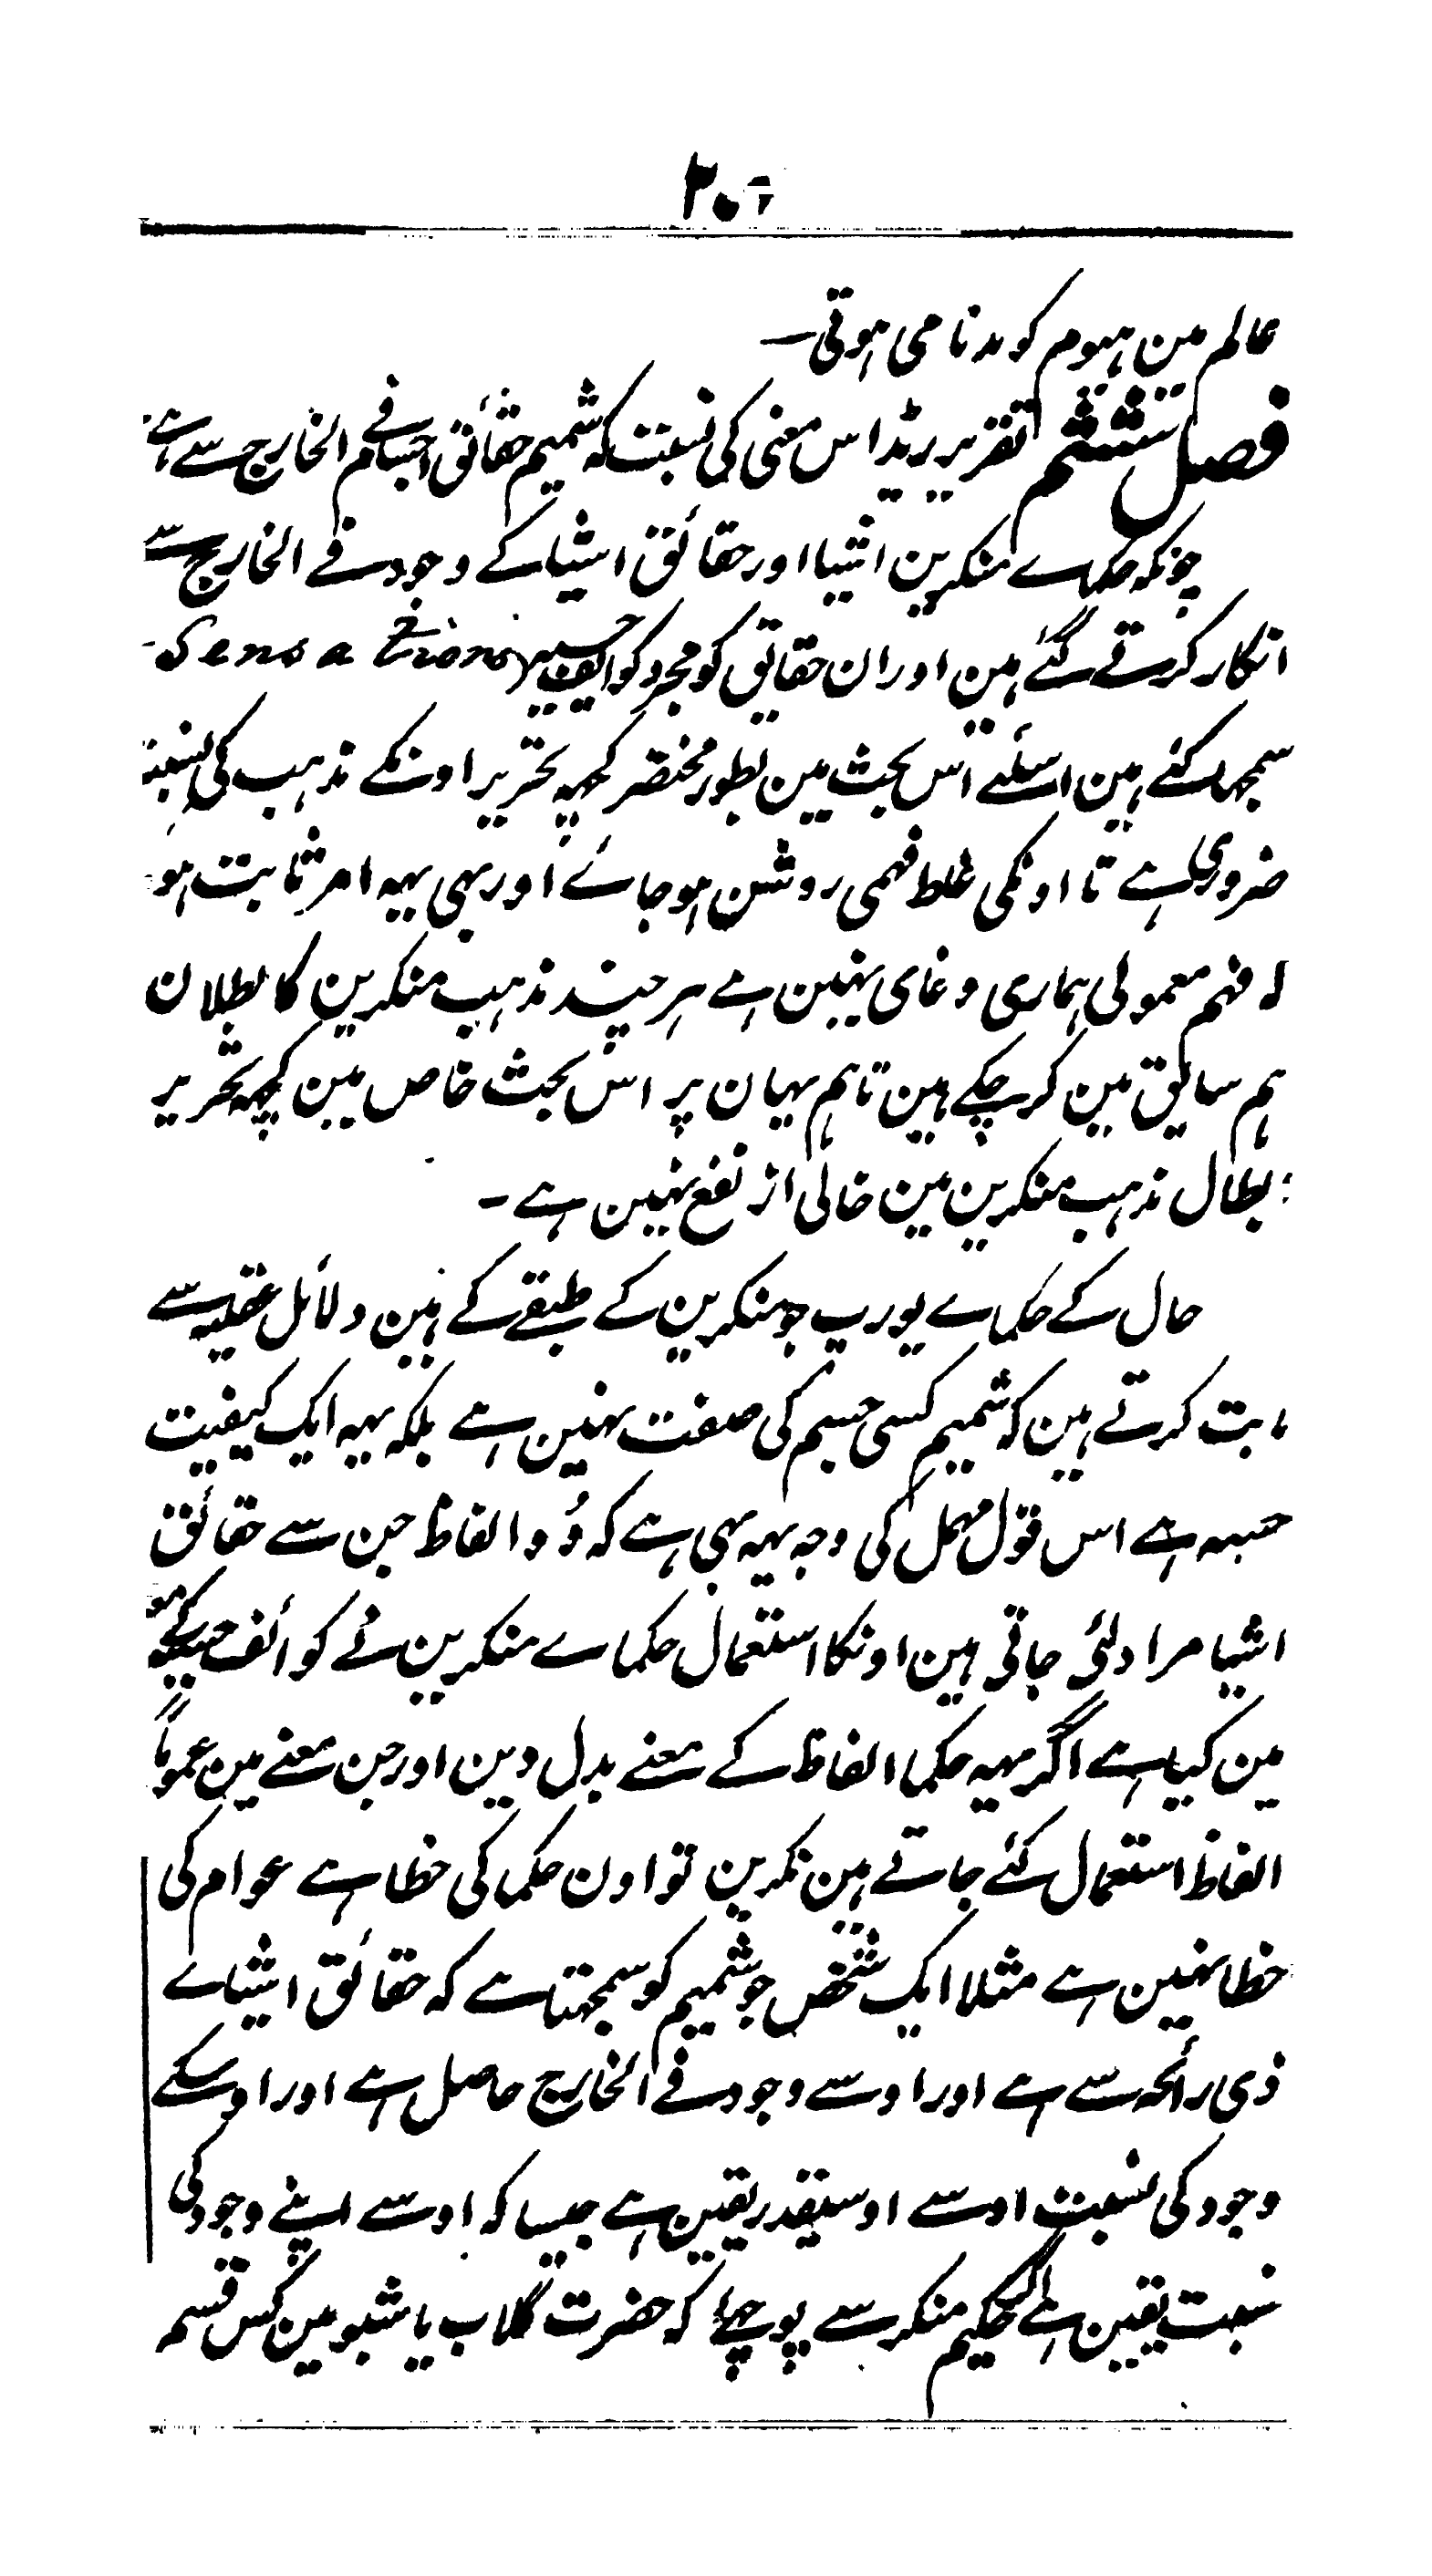 عالم مین ہیوم کو بدنامی ہوتی۔
فصل ششم تقریر ریڈ اس معنی کی نسبت کہ شمیم حقائق اجسام فے الخارج سے ہے
چونکہ حکماے منکرین اشیا اور حقائق اشیا کے وجود فے الخارج سے
انکار کرتے گئے ہین اور ان حقایق کو مجرد کوایف حسیہ Sensations
سمجہا کئے ہین اسلئے اس بحث مین بطور مختصر کچہہ تحریر اونکے مذہب کی نسبت
ضروری ہے تا اونکی غلط فہمی روشن ہو جائے اور بہی یہہ امر ثابت ہو
فہم معمولی ہماری دغای نہین ہے ہر چند مذہب منکرین کا بطلان
ہم سابق مین کر چکے ہین تاہم یہان پر اس بحث خاص مین کچہہ تحریر
بطال مذہب منکرین مین خالی از نفع نہین ہے۔
حال کے حکماے یورپ جو منکرین کے طبقے کے ہین دلائل عقلیہ سے
ابت کرتے ہین کہ شمیم کسی جسم کی صفت نہین ہے بلکہ یہہ ایک کیفیت
حسیہ ہے اس قول مہمل کی وجہ یہہ بہی ہے کہ وُہ الفاظ جن سے حقائق
اشیا مراد لئی جاتی ہین اونکا استعمال حکماے منکرین نے کوائف حسیہ کے
مین کیا ہے اگر یہہ حکما الفاظ کے معنے بدل دین اور جن معنے مین عموماً
الفاظ استعمال کئے جاتے ہین نکرین تو اون حکما کی خطا ہے عوام کی
خطا نہین ہے مثلا ایک شخص جو شمیم کو سمجہتا ہے کہ حقائق اشیاے
ذی رائحہ سے ہے اور اوسے وجود فے الخارج حاصل ہے اور اوسکے
وجود کی نسبت اوسے اوسیقدر یقین ہے جیسا کہ اوسے اپنے وجود کی
نسبت یقین ہے اگر حکیم منکر سے پوچہے کہ حضرت گلاب یا شبو مین کس قسم